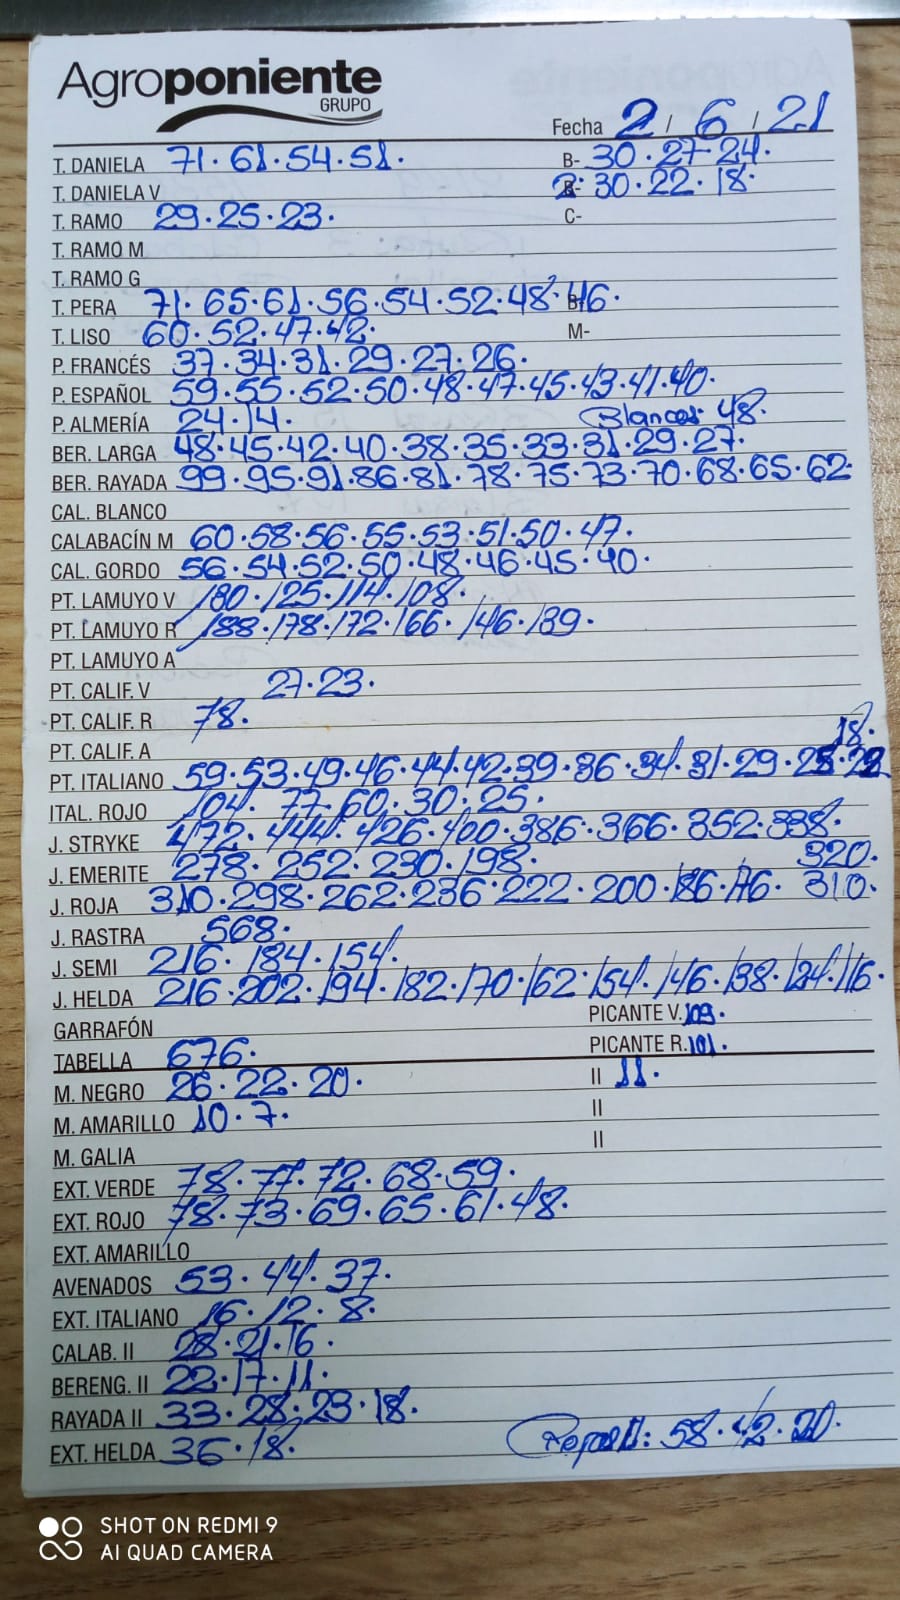 Agroponiente
GRUPO
Fecha 2 / 6 / 21
T. DANIELA 71·61·54·51· B- 30·27·24·
T. DANIELA V 2: 30·22·18·
T. RAMO 29·25·23· C-
T. RAMO M
T. RAMO G
T. PERA 71·65·61·56·54·52·48·46·
T. LISO 60·52·47·42· M-
P. FRANCÉS 37·34·31·29·27·26·
P. ESPAÑOL 59·55·52·50·48·47·45·43·41·40·
P. ALMERÍA 24·14· Blancos· 48·
BER. LARGA 48·45·42·40·38·35·33·31·29·27·
BER. RAYADA 99·95·91·86·81·78·75·73·70·68·65·62·
CAL. BLANCO
CALABACÍN M 60·58·56·55·53·51·50·47·
CAL. GORDO 56·54·52·50·48·46·45·40·
PT. LAMUYO V 130·125·114·108·
PT. LAMUYO R 188·178·172·166·146·139·
PT. LAMUYO A
PT. CALIF. V 27·23·
PT. CALIF. R 78·
PT. CALIF. A 18·
PT. ITALIANO 59·53·49·46·44·42·39·36·34·31·29·25·23
ITAL. ROJO 104·77·60·30·25·
J. STRYKE 472·444·426·400·386·366·352·338·
J. EMERITE 278·252·230·198· 320·
J. ROJA 310·298·262·236·222·200·186·176· 310·
J. RASTRA 568·
J. SEMI 216·184·154·
J. HELDA 216·202·194·182·170·162·154·146·138·124·116·
GARRAFÓN PICANTE V. 109·
TABELLA 676· PICANTE R. 101·
M. NEGRO 26·22·20· II 11·
M. AMARILLO 10·7· II
M. GALIA II
EXT. VERDE 78·77·72·68·59·
EXT. ROJO 78·73·69·65·61·48·
EXT. AMARILLO
AVENADOS 53·44·37·
EXT. ITALIANO 16·12·8·
CALAB. II 28·21·16·
BERENG. II 22·17·11·
RAYADA II 33·28·23·18·
EXT. HELDA 36·18· 58·42·20·
SHOT ON REDMI 9
AI QUAD CAMERA